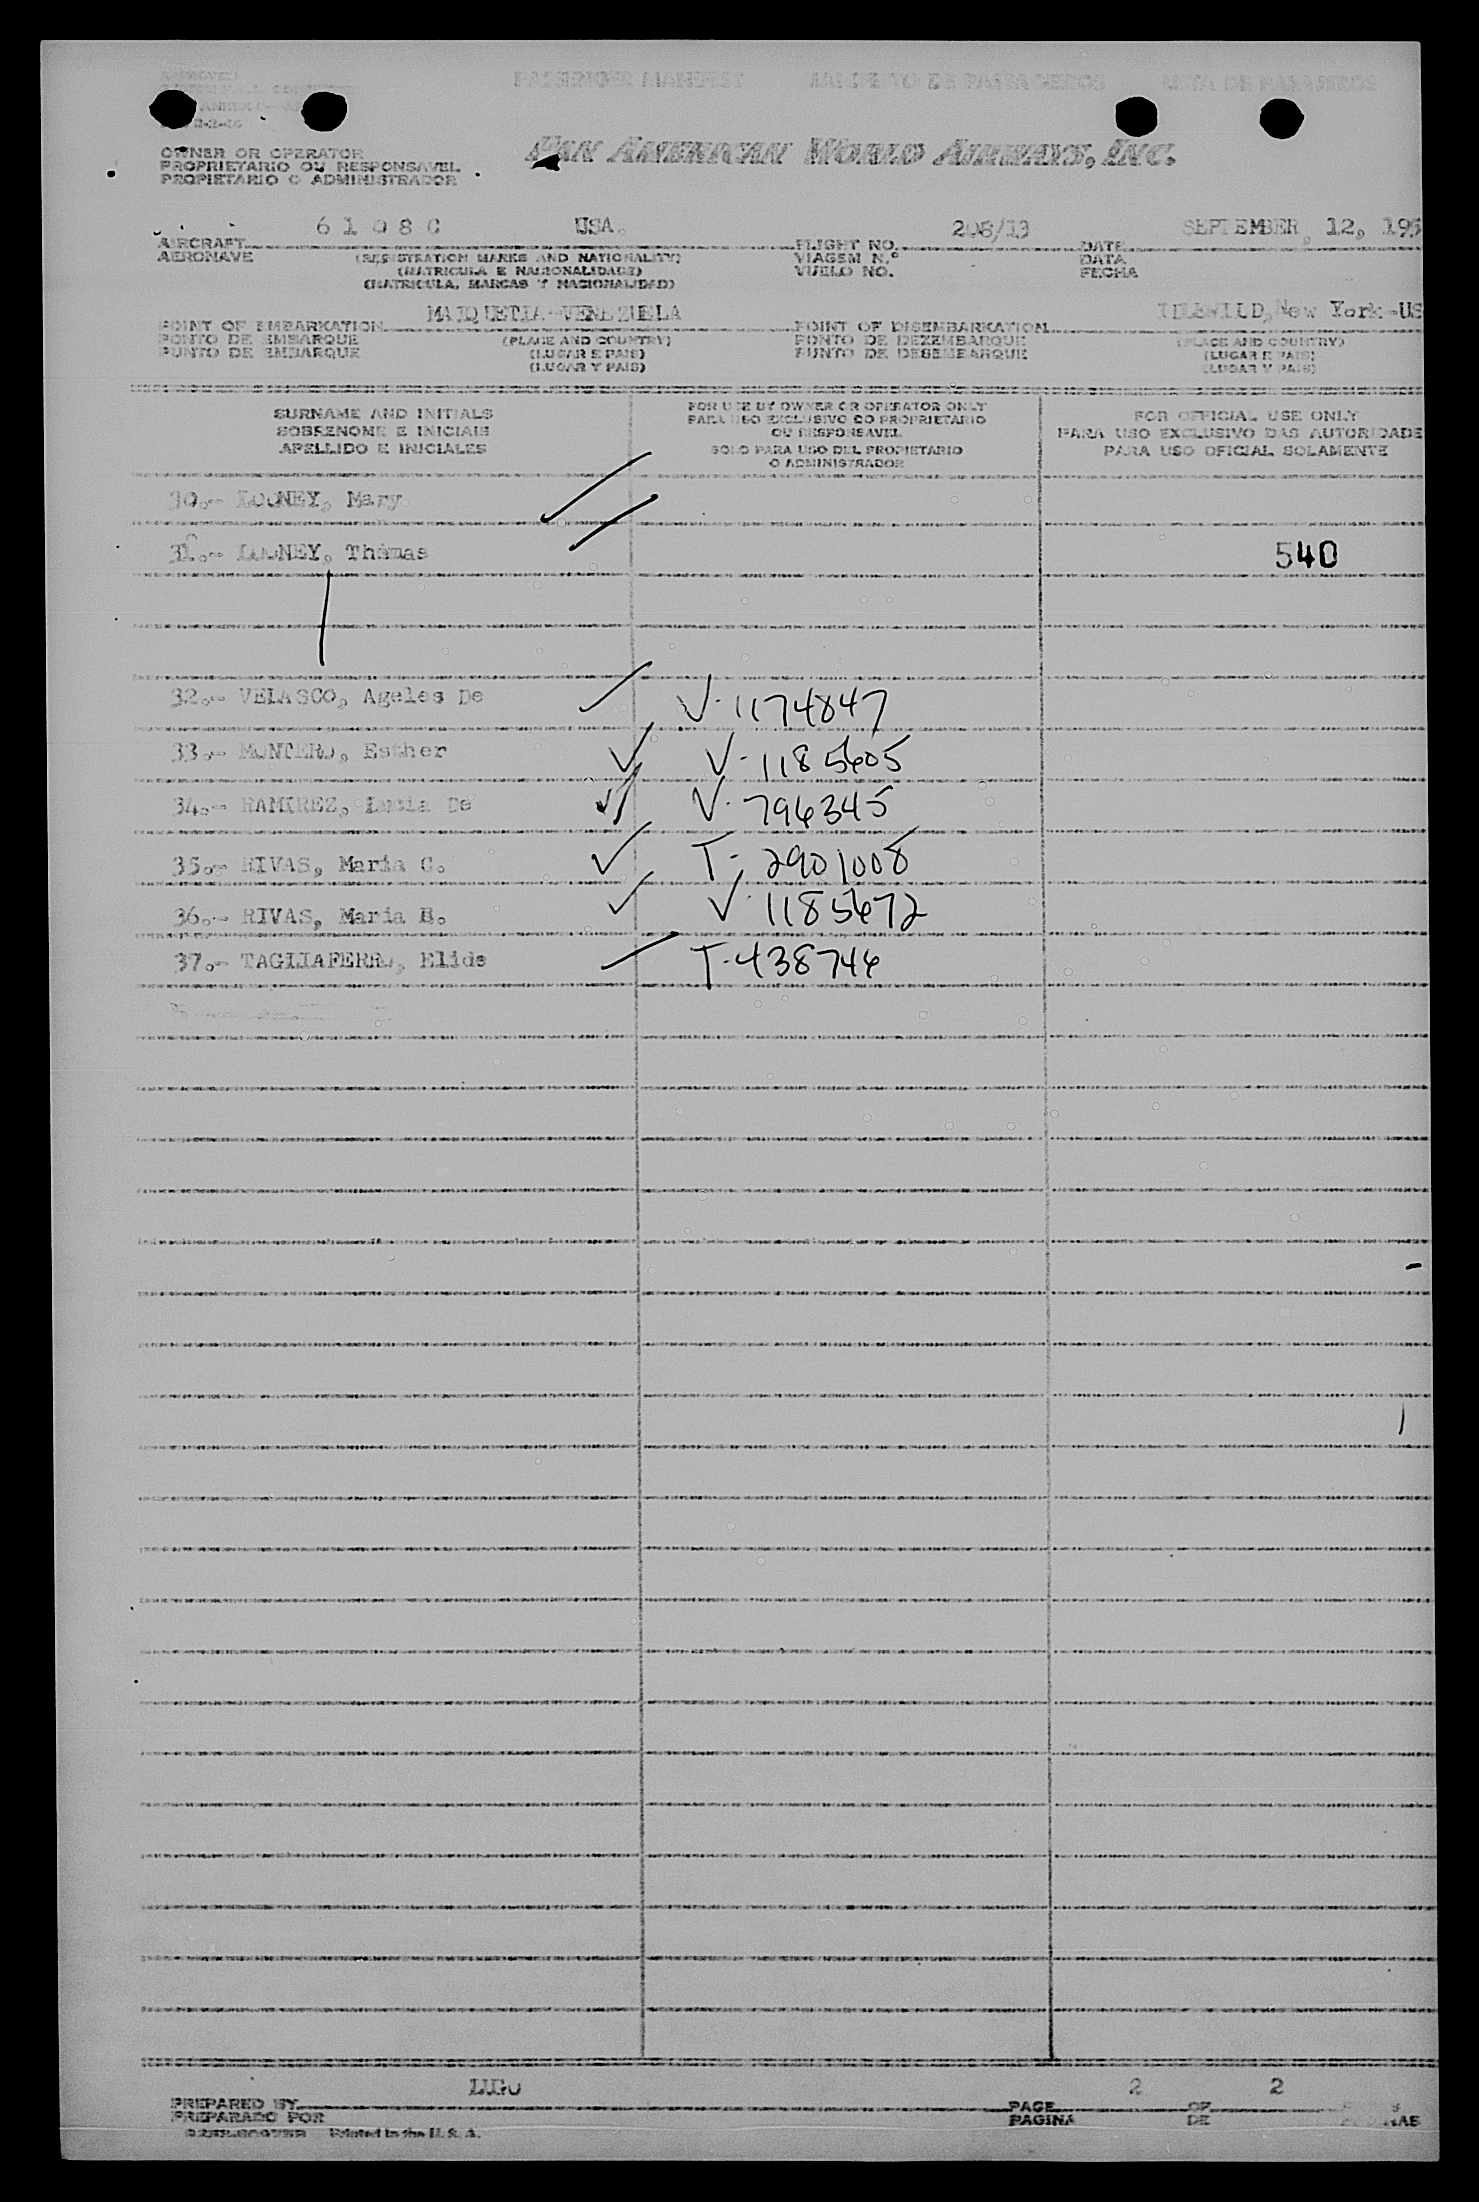 PASSENGER MANIFEST MANIFESTO DE PASSAGEIROS LISTA DE PASAJEROS
APPROVED
OWNER OR OPERATOR
PROPRIETARIO OU RESPONSAVEL
PROPIETARIO O ADMINISTRADOR
PAN AMERICAN WORLD AIRWAYS, INC.
6108C USA. 208/13 SEPTEMBER, 12, 195
AIRCRAFT FLIGHT NO. DATE
AERONAVE (REGISTRATION MARKS AND NATIONALITY) VIAGEM N.º DATA
(MATRICULA E NACIONALIDADE) VUELO NO. FECHA
(MATRICULA, MARCAS Y NACIONALIDAD)
MAIQUETIA-VENEZUELA IDLEWILD, New York-US
POINT OF EMBARKATION POINT OF DISEMBARKATION
PONTO DE EMBARQUE (PLACE AND COUNTRY) PONTO DE DEZEMBARQUE (PLACE AND COUNTRY)
PUNTO DE EMBARQUE (LUGAR E PAIS) PUNTO DE DESEMBARQUE (LUGAR E PAIS)
(LUGAR Y PAIS) (LUGAR Y PAIS)
SURNAME AND INITIALS
SOBRENOME E INICIAIS
APELLIDO E INICIALES
FOR USE BY OWNER OR OPERATOR ONLY
PARA USO EXCLUSIVO DO PROPRIETARIO
OU RESPONSAVEL
SOLO PARA USO DEL PROPIETARIO
O ADMINISTRADOR
FOR OFFICIAL USE ONLY
PARA USO EXCLUSIVO DAS AUTORIDADE
PARA USO OFICIAL SOLAMENTE
30.- LOONEY, Mary
31.- LOONEY, Thomas 540
32.- VELASCO, Ageles De V-1174847
33.- MONTERO, Esther V-1185605
34.- RAMIREZ, Lucia De V-796345
35.- RIVAS, Maria C. T-2901008
36.- RIVAS, Maria H. V-1185672
37.- TAGLIAFERRO, Elide T-438746
LUGO 2 2
PREPARED BY PAGE OF
PREPARADO POR PAGINA DE
Printed in the U. S. A.